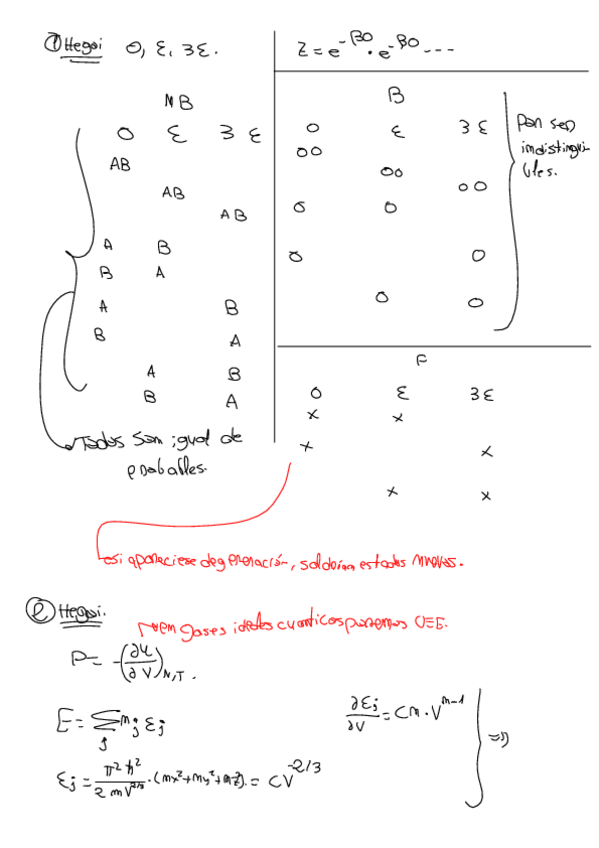 ① Hegoi 0, ε, 3ε.
Z = e^{-β0} · e^{-β0} ---
MB
0 ε 3ε
AB
AB
AB
A B
B A
A B
B A
A B
B A
Todos son igual de
probables.
B
0 ε 3ε
oo
oo
oo
o o
o o
o o
Por ser
indistingui-
bles.
F
0 ε 3ε
x x
x x
x x
si apareciese degeneración, saldrían estados nuevos.
② Hegoi.
en gases ideales cuánticos ponemos U≡E.
P = -(∂U/∂V)_{N,T}.
E = Σ_j n_j ε_j
ε_j = π²ħ²/2mV^{2/3} · (nx²+ny²+nz²) = CV^{-2/3}
∂ε_j/∂V = Cn · V^{n-1}
⇒